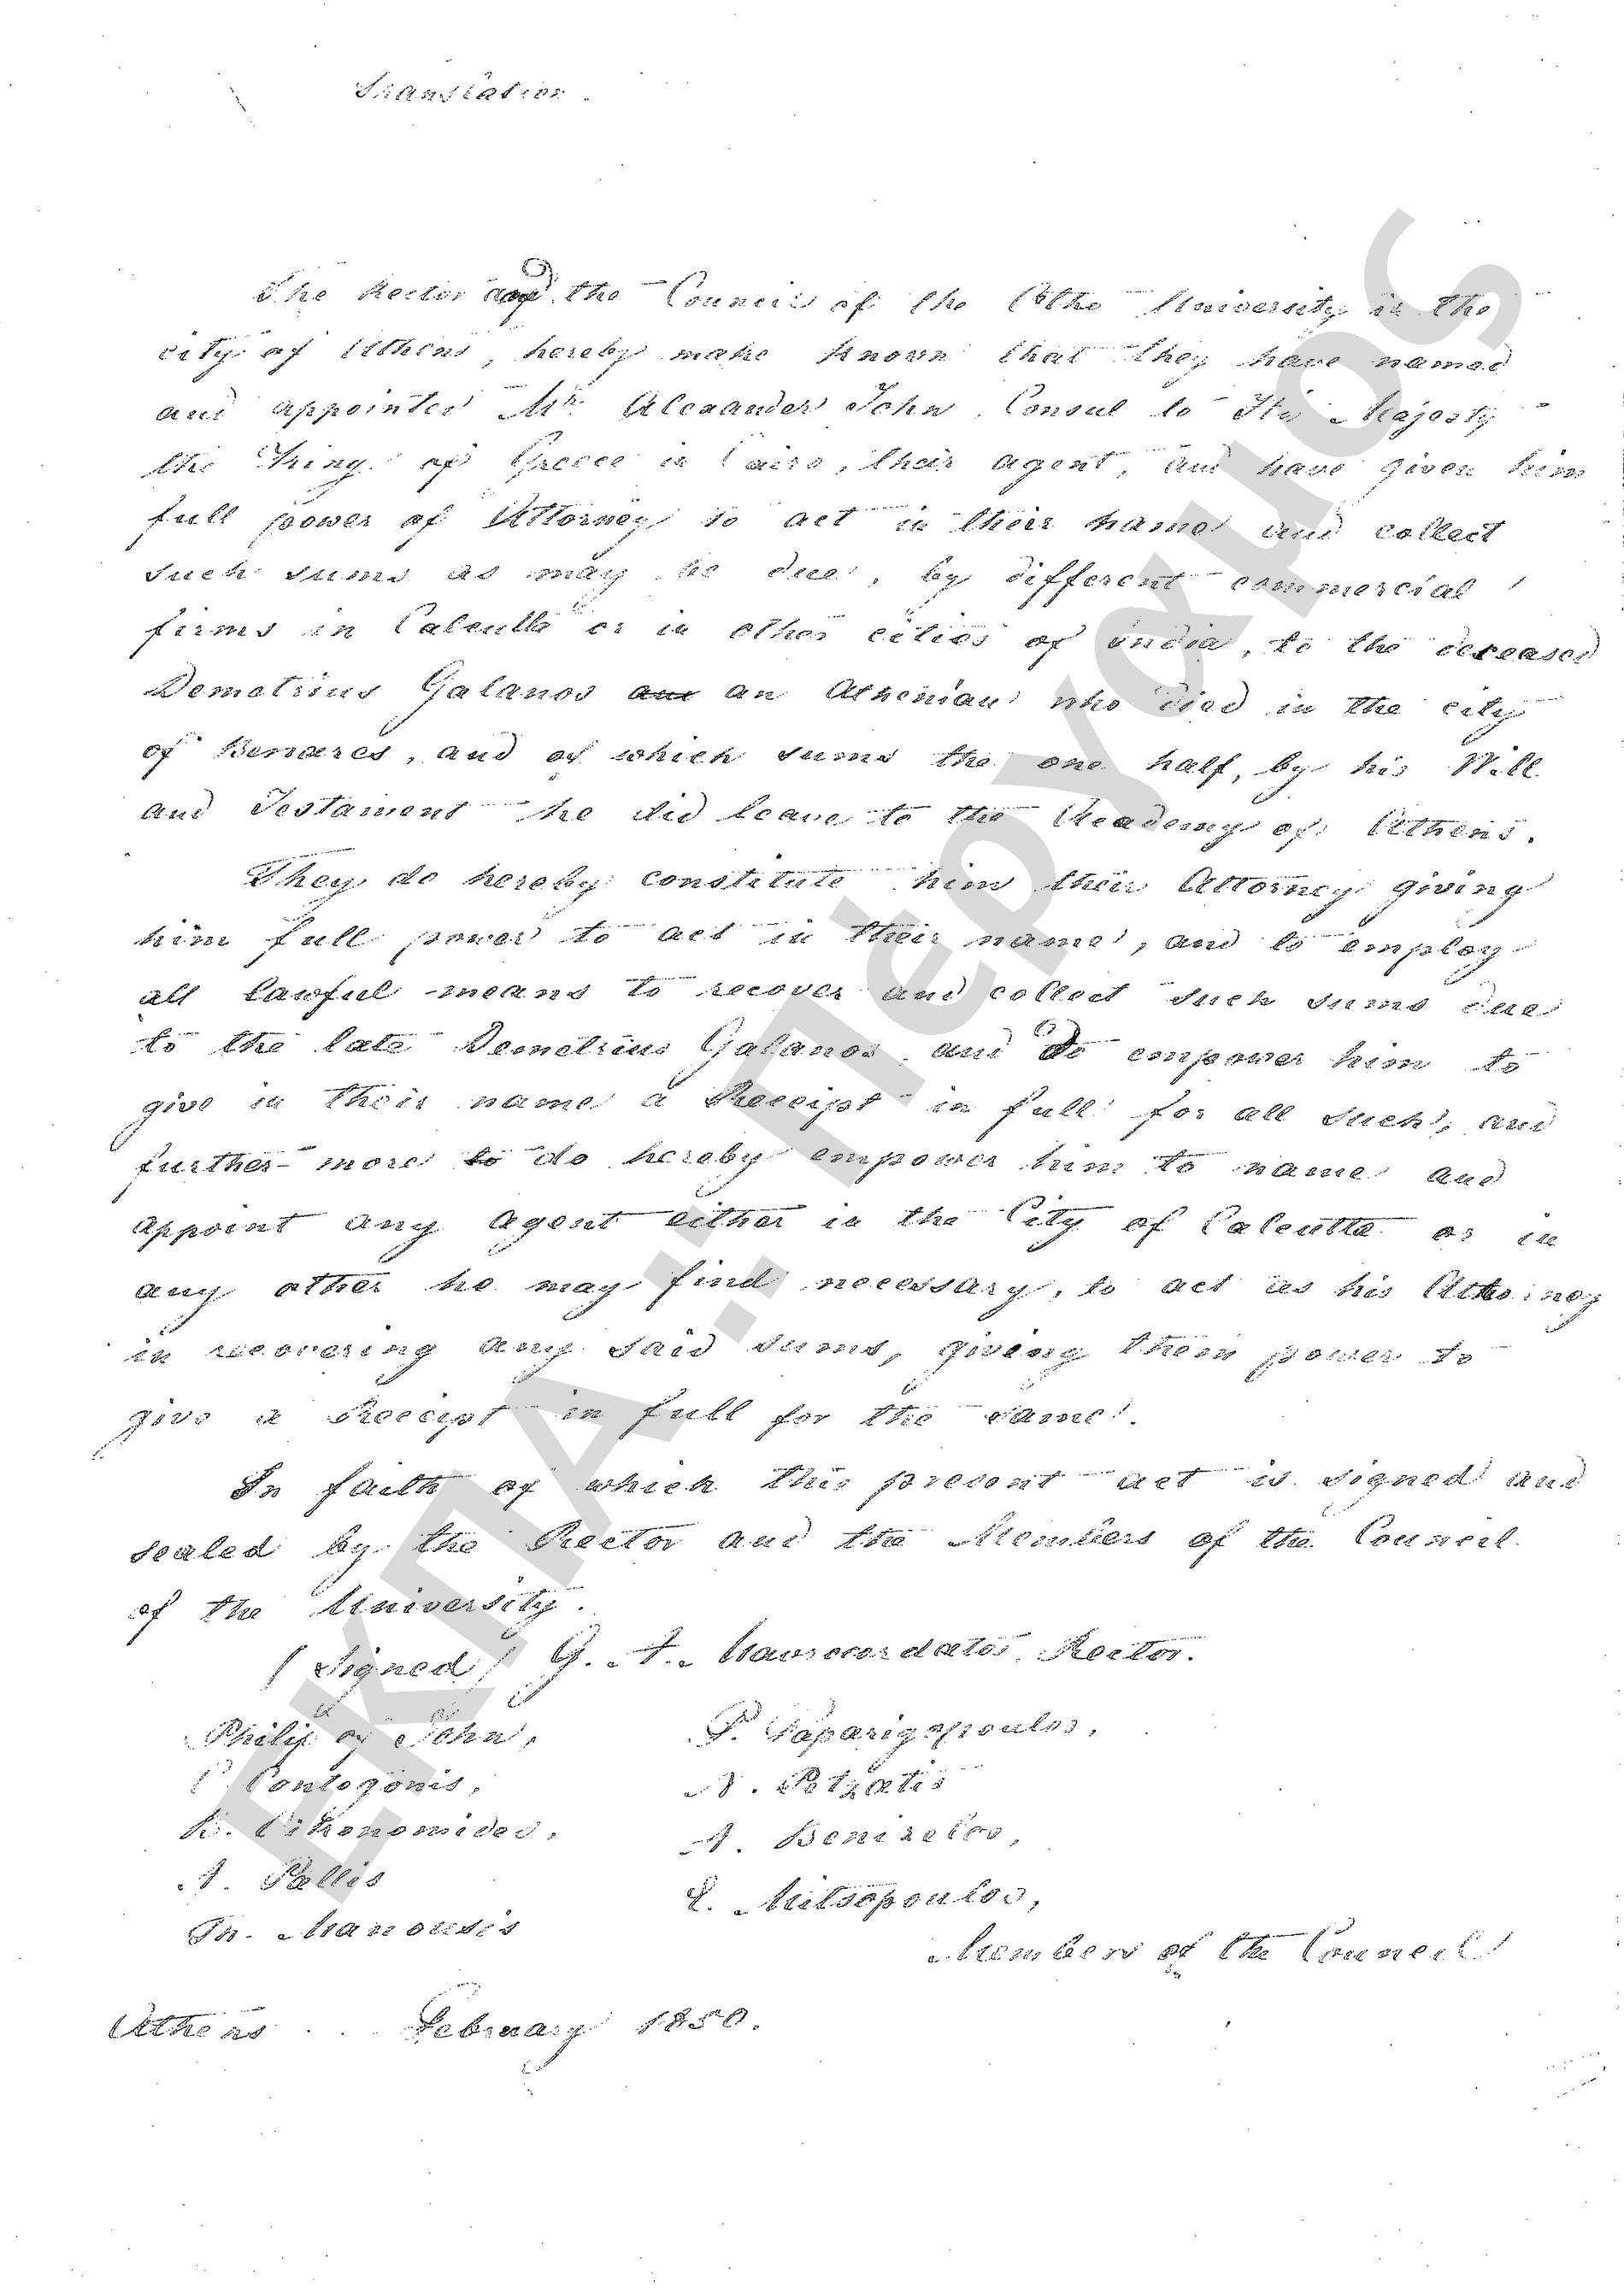 Translation.
The Rector and the Council of the Otho University in the
city of Athens, hereby make known that they have named
and appointed Mr. Alexander John, Consul to His Majesty
the King of Greece in Cairo, their agent, and have given him
full power of Attorney to act in their name and collect
such sums as may be due, by different commercial
firms in Calcutta or in other cities of India, to the deceased
Demetrius Galanos an Athenian who died in the city
of Benares, and of which sums the one half, by his Will
and Testament he did leave to the Academy of Athens.
They do hereby constitute him their Attorney giving
him full power to act in their name, and to employ
all lawful means to recover and collect such sums due
to the late Demetrius Galanos, and do empower him to
give in their name a Receipt in full for all such, and
further more do hereby empower him to name and
appoint any agent either in the City of Calcutta or in
any other he may find necessary, to act as his Attorney
in recovering any said sums, giving them power to
give a Receipt in full for the same.
In faith of which this present act is signed and
sealed by the Rector and the Members of the Council
of the University.
(Signed) G. A. Mavrocordatos Rector.
Philip of John, P. Paparigopoulos,
C. Contogonis, A.
K. Oikonomides, A. Benizelos,
A. Pallis E. Mitsopoulos,
Th. Manousis
Members of the Council
Athens . . . February 1850.
ΕΚΠΑ.:.Πέργαμος